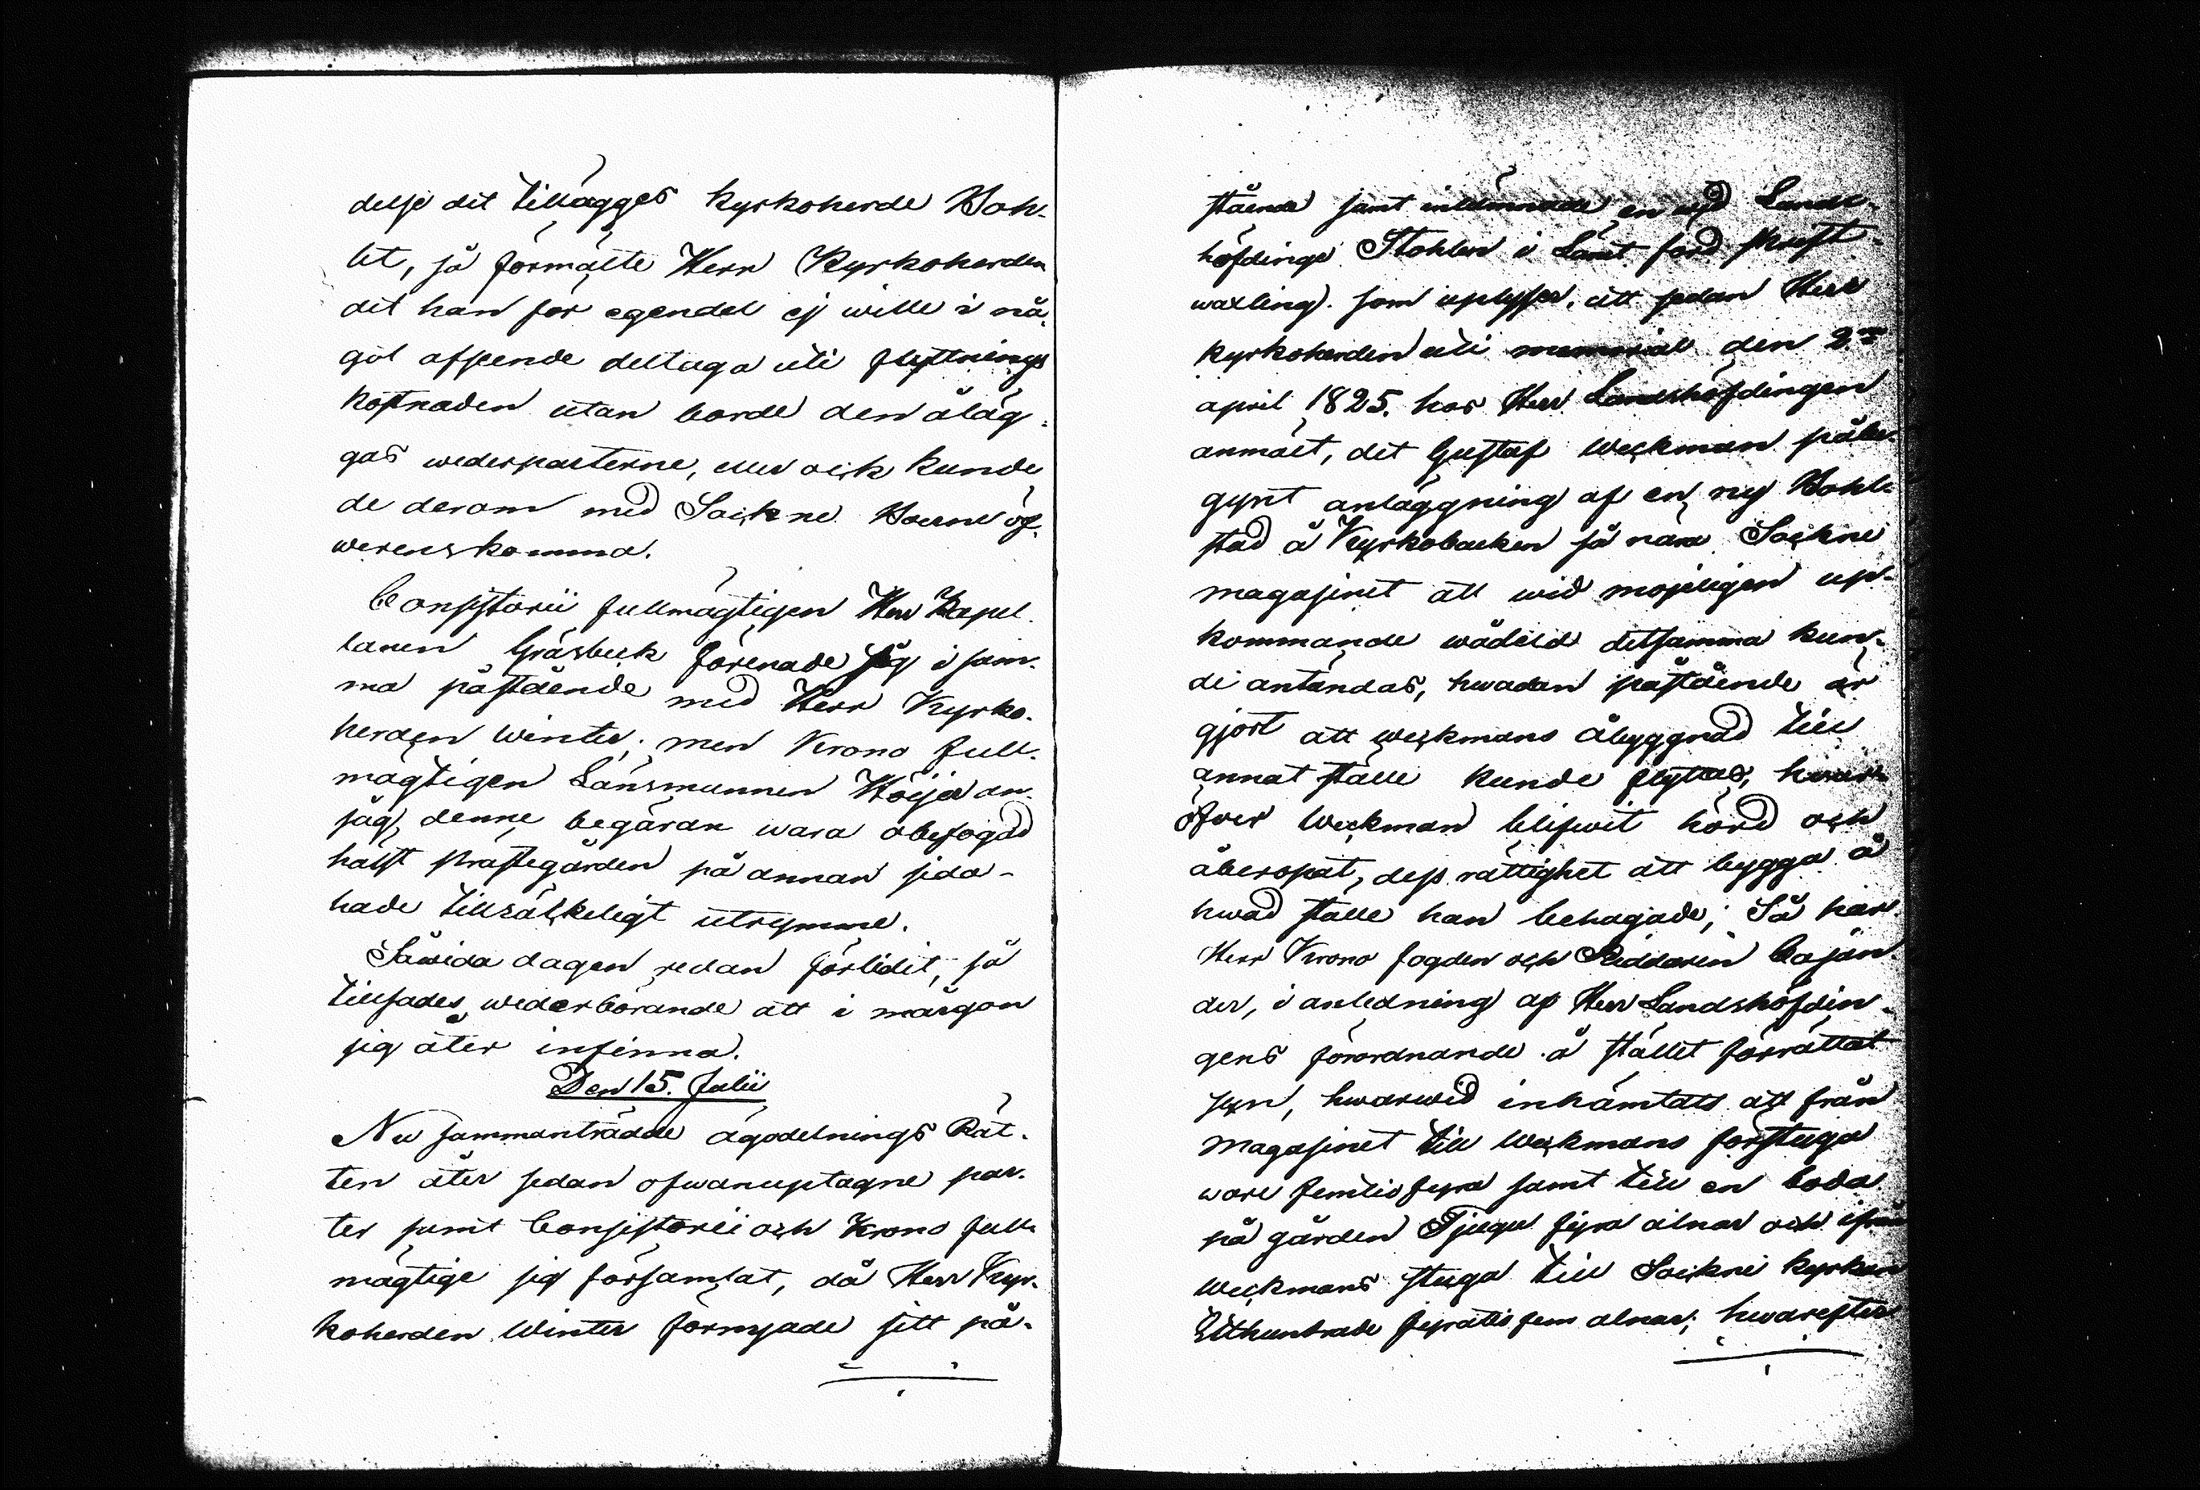 delse det tillägges Kyrkoherde Boh-
let, så förmälte Herr Kyrkoherden
det han för egendel ej wille i nå-
got afseende deltaga uti flyttnings
kostnaden utan borde den åläg-
gas wederparterne, eller ock kunde
de derom med Sockne Boerne öf-
werenskomma.
Consistorii fullmägtigen Herr Kapel-
lanen Gråsbeck förenade sig i sam-
ma påstående med Herr Kyrko-
herden Winter; men Krono full-
mägtigen Länsmannen Höijer an-
såg denne begäran wara obefogad
hälst Prästegården på annan sida
hade tillräckeligt utrymme.
Såwida dagen redan förlidit, så
tillsades wederbörande att i morgon
sig åter infinna.
Den 15. Julii
Nu sammanträdde ägodelnings Rät-
ten åter sedan ofwanuptagne par-
ter samt Consistorii och Krono full-
mägtige sig församlat, då Herr Kyr-
koherden Winter förnyade sitt på-
stående samt inlämnade en wid Lands-
höfdinge Stohlen i Länet förd skrift-
waxling som uplyser, att sedan Herr
Kyrkoherden uti memorial den 2
april 1825. hos Herr Landshöfdingen
anmält, det Gustaf Weckman påbe-
gynt anläggning af en ny Bohl-
stad å Kyrkobacken så nära Sockne
magasinet att wid möjeligen up-
kommande wådeld detsamma kun-
de antändas, hwadan påstående är
gjort att Weckmans åbyggnad till
annat ställe kunde flyttas, hwar-
öfver Weckman blifwit hörd och
åberopat, dess rättighet att bygga å
hwad ställe han behagade; Så har
Herr Krono fogden och Riddaren Cajan-
der, i anledning af Herr Landshöfdin-
gens förordnande å stället förrättat
syn, hwarwid inhämtats att från
Magasinet till Weckmans förstuga
wore femtio fyra samt till en boda
på gården Tjugu fyra alnar och ifrån
Weckmans stuga till Sockne kyrkan
Etthundrade fyratio fem alnar; hwarefter